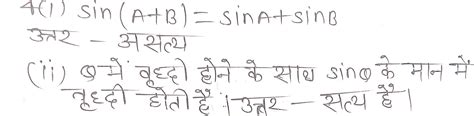 4(i) sin (A+B) = sinA+sinB
उत्तर – असत्य
(ii) θ में वृध्दी होने के साथ sinθ के मान में
वृध्दी होती है । उत्तर – सत्य है ।